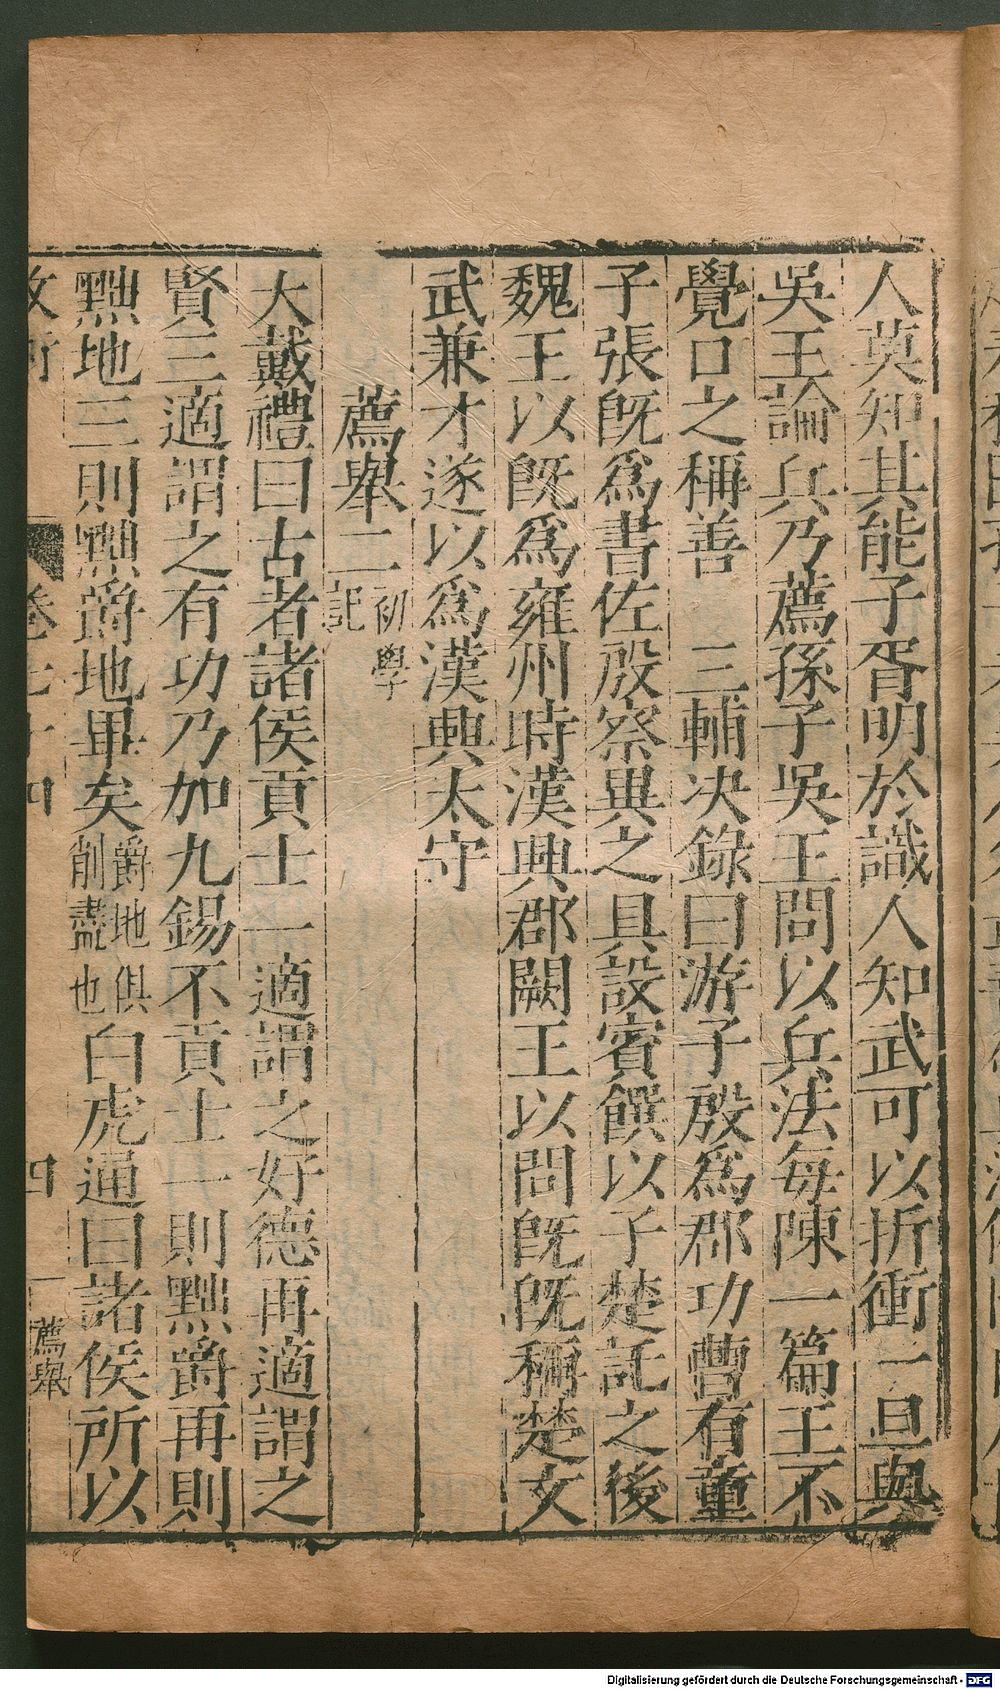 人莫知其能子胥明於識人知武可以折衝一旦與
吳王論兵乃薦孫子吳王問以兵法每陳一篇王不
覺口之稱善　三輔决錄曰游子殷爲郡功曹有童
子張旣爲書佐殷察異之具設賓饌以子楚託之後
魏王以旣爲雍州時漢興郡闕王以問旣旣稱楚文
武兼才遂以爲漢興太守
薦舉二初學記
大戴禮曰古者諸侯貢士一適謂之好德再適謂之
賢三適謂之有功乃加九錫不貢士一則黜爵再則
黜地三則黜爵地畢矣爵地俱削盡也白虎通曰諸侯所以
卷七十四　四　薦舉
Digitalisierung gefördert durch die Deutsche Forschungsgemeinschaft - DFG